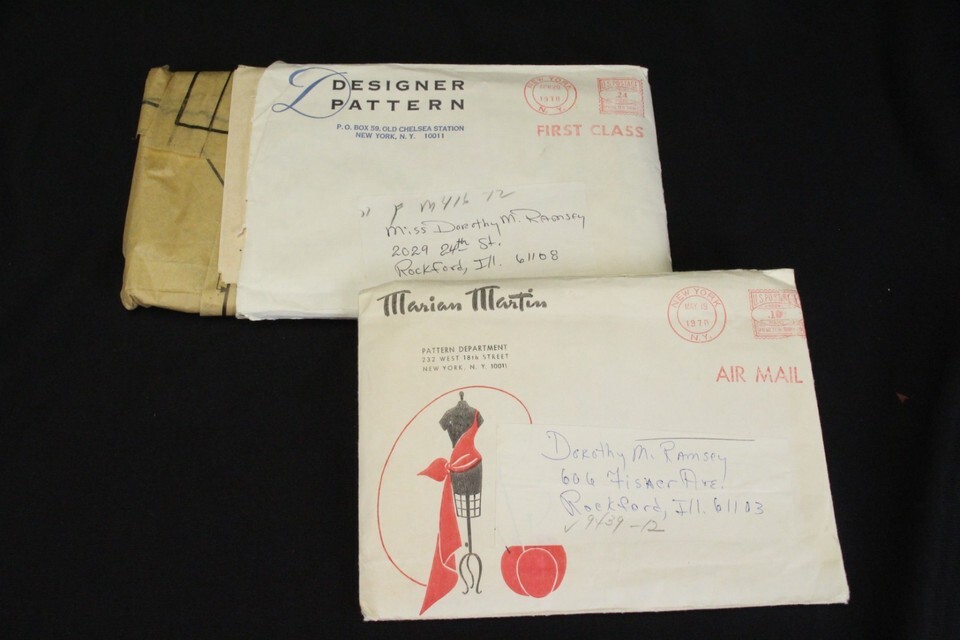 DESIGNER
PATTERN
P.O. BOX 59, OLD CHELSEA STATION
NEW YORK, N.Y. 10011
NEW YORK
1970
N.Y.
FIRST CLASS
" P M416 12
Miss Dorothy M. Ramsey
2029 24th St.
Rockford, Ill. 61108
Marian Martin
PATTERN DEPARTMENT
232 WEST 18th STREET
NEW YORK, N. Y. 10011
NEW YORK
NOV
1970
N.Y.
AIR MAIL
Dorothy M. Ramsey
606 Fisher Ave.
Rockford, Ill. 61103
✓ 9439-12